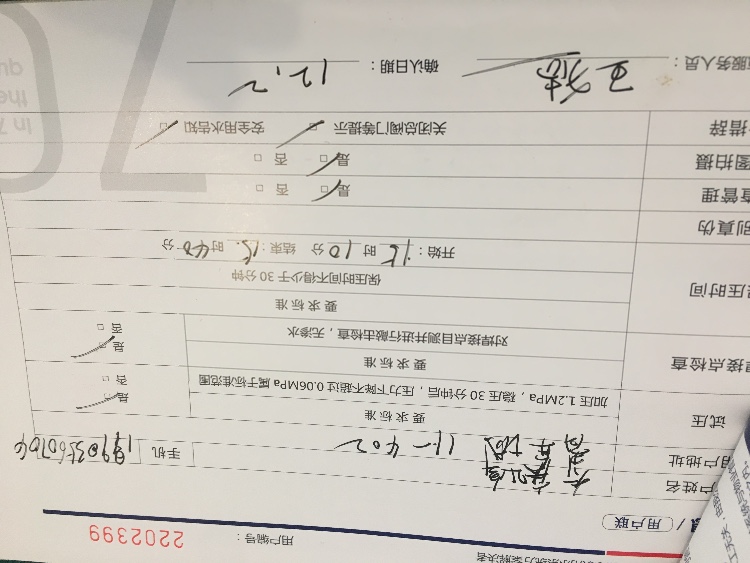 方案解决者
用户联
用户编号：2202399
户姓名
用户地址 11-402 手机
试压 要求标准
加压1.2MPa，稳压30分钟后，压力下降不超过0.06MPa属于标准范围
是
否
焊接点检查 要求标准
对焊接点目测并进行敲击检查，无渗水
是
否
压时间 要求标准
保压时间不得少于30分钟
开始：15时10分 结束：15时40分
别真伪
查管理 是 否
图拍摄 是 否
措辞 关闭总阀门等提示 安全用水告知
服务人员： 确认日期：12.2
In 7
the
qu
70